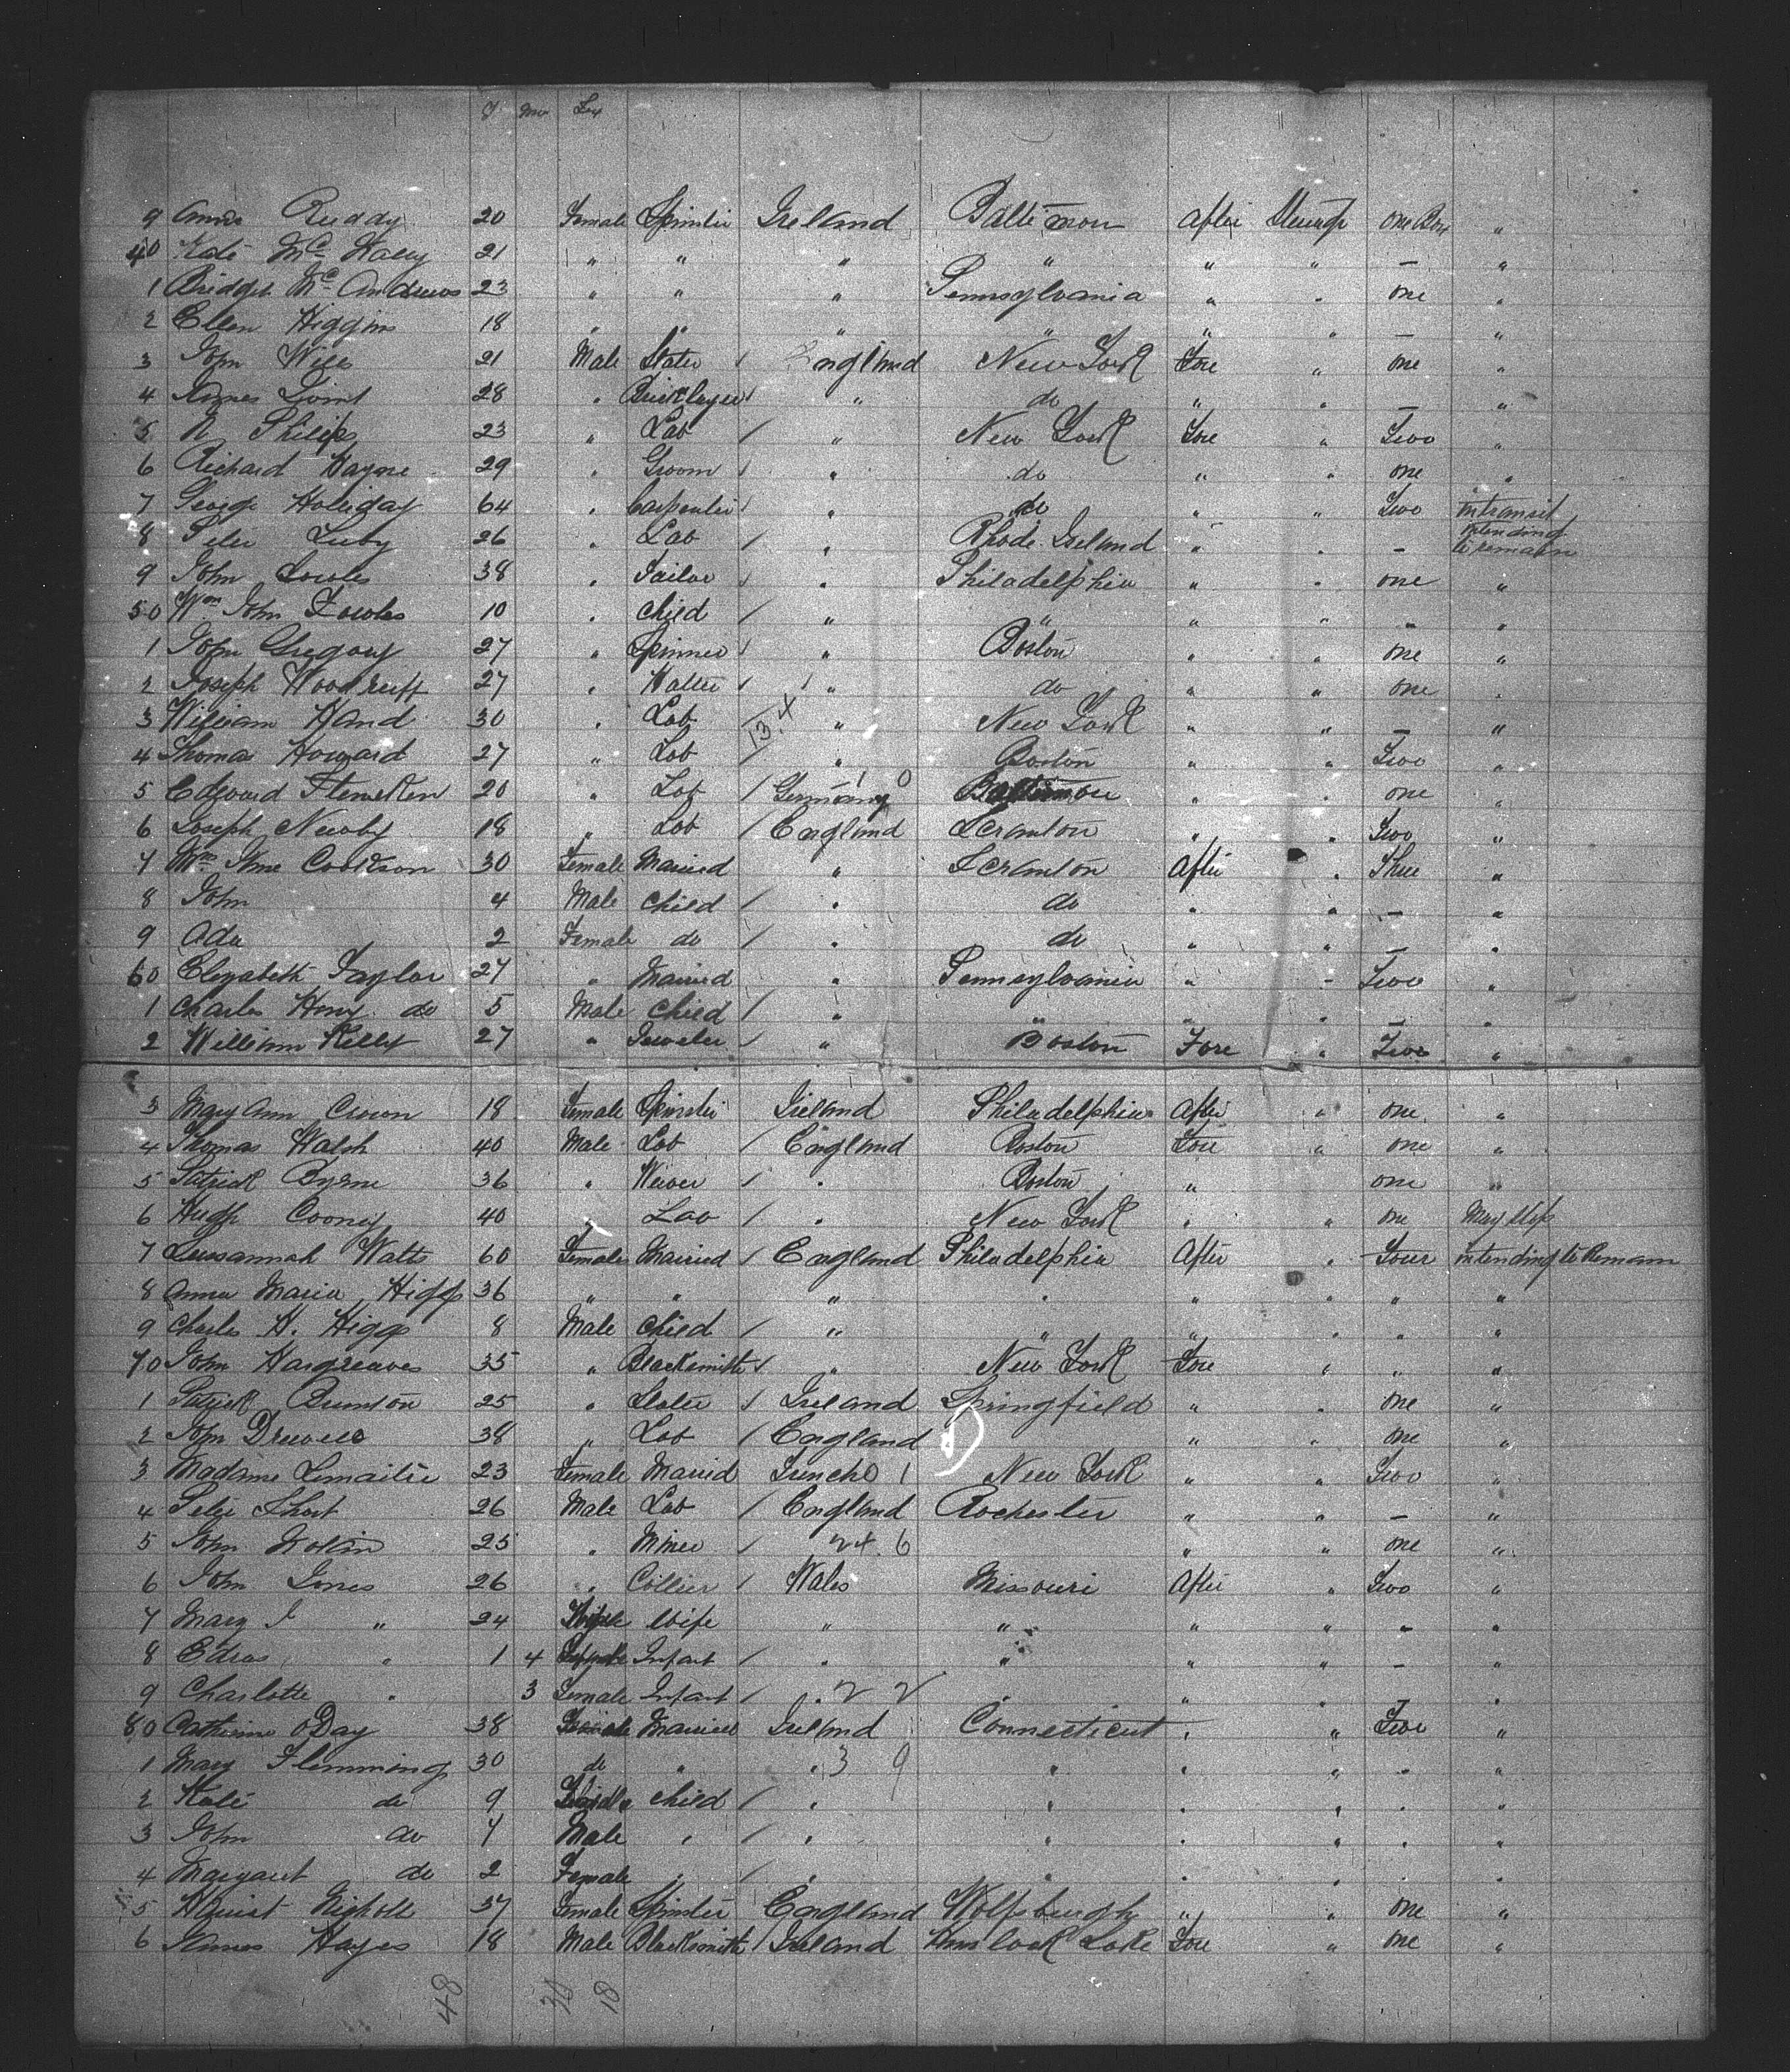 Y Mo Sex
9 Annie Ruddy 20 Female Spinster Ireland Baltimore After Steerage one Box "
40 Kate Mc Haley 21 " " " " " " — "
1 Bridget Mc Andrews 23 " " " Pennsylvania " " one "
2 Ellen Higgins 18 " " " " " " — "
3 John Wills 21 Male Slater / England New York Fore " one "
4 James 28 " Bricklayer / " do " " — "
5 N Philips 23 " Lab / " New York Fore " Two "
6 Richard Hayne 29 " Groom / " do " " one "
7 George Holliday 64 " Carpenter / " do " " Two intransit
8 Peter Luby 26 " Lab / " Rhode Island " " — intending to remain
9 John Fowles 38 " Tailor / " Philadelphia " " one "
50 Wm John Fowles 10 " Child / " " " " " "
1 John Gregory 27 " Spinner / " Boston " " one "
2 Joseph Woodruff 27 " / " do " " one "
3 William Hand 30 " Lab 13.4 " New York " " — "
4 Thomas Howard 27 " Lab / " Boston " " Two "
5 Edward 20 " Lab / Germany 1 0 Baltimore " " one "
6 Joseph Newby 18 " Lab / England Scranton " " Two "
7 Mrs Jane Cookson 30 Female Married " Scranton After " Three "
8 John 4 Male Child / " do " " — "
9 Ada 2 Female do / " do " " — "
60 Elizabeth Taylor 27 " Married " Pennsylvania " " Two "
1 Charles Henry do 5 Male Child / " " " " — "
2 William Kelly 27 " Jeweler / " Boston Fore " Two "
3 Mary Ann Crown 18 Female Spinster Ireland Philadelphia After " one "
4 Thomas Walsh 40 Male Lab / England Boston Fore " one "
5 Patrick Byrne 36 " Weaver / " Boston " one "
6 Hugh Cooney 40 " Lab / " New York " " one May Stop
7 Sussannah Watts 60 Female Married / England Philadelphia After " Four intending to Remain
8 Anna Maria Higgs 36 " " " " " " " "
9 Charles H. Higgs 8 Male Child / " " " " " "
70 John Hargreaves 35 " Blacksmith / " New York Fore " " "
1 Patrick Brunton 25 " Slater / Ireland Springfield " " one "
2 John 38 " Lab / England " " one "
3 Madame Lemaitre 23 Female Married French 0 1 New York " " Two "
4 Peter Short 26 Male Lab / England Rochester " " — "
5 John 25 " Miner / 24.6 " " one "
6 John Jones 26 " Collier / Wales Missouri After " Two "
7 Mary J " 24 Wife " " " " — "
8 " 1 4 Infant / " " " " — "
9 Charlotte " 3 Female Infant / " 2 2 " " " — "
80 Catherine ODay 38 Female Married Ireland Connecticut " " Two "
1 Mary Flemming 30 do " " 3 9 " " " " "
2 Kate do 9 Child / " " " " " "
3 John do 7 Male " / " " " " " "
4 Margaret do 2 Female " / " " " " " "
5 Harriet Nicholls 37 Female Spinster England Wolfsburgh " " one "
6 James Hayes 18 Male Blacksmith / Ireland Lake Fore " one "
48 30 18